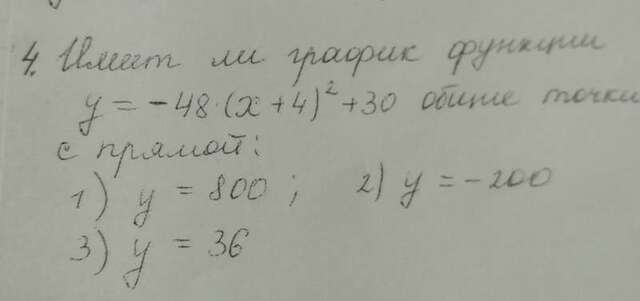 4. Имеет ли график функции
y = -48·(x+4)²+30 общие точки
с прямой:
1) y = 800 ; 2) y = -200
3) y = 36